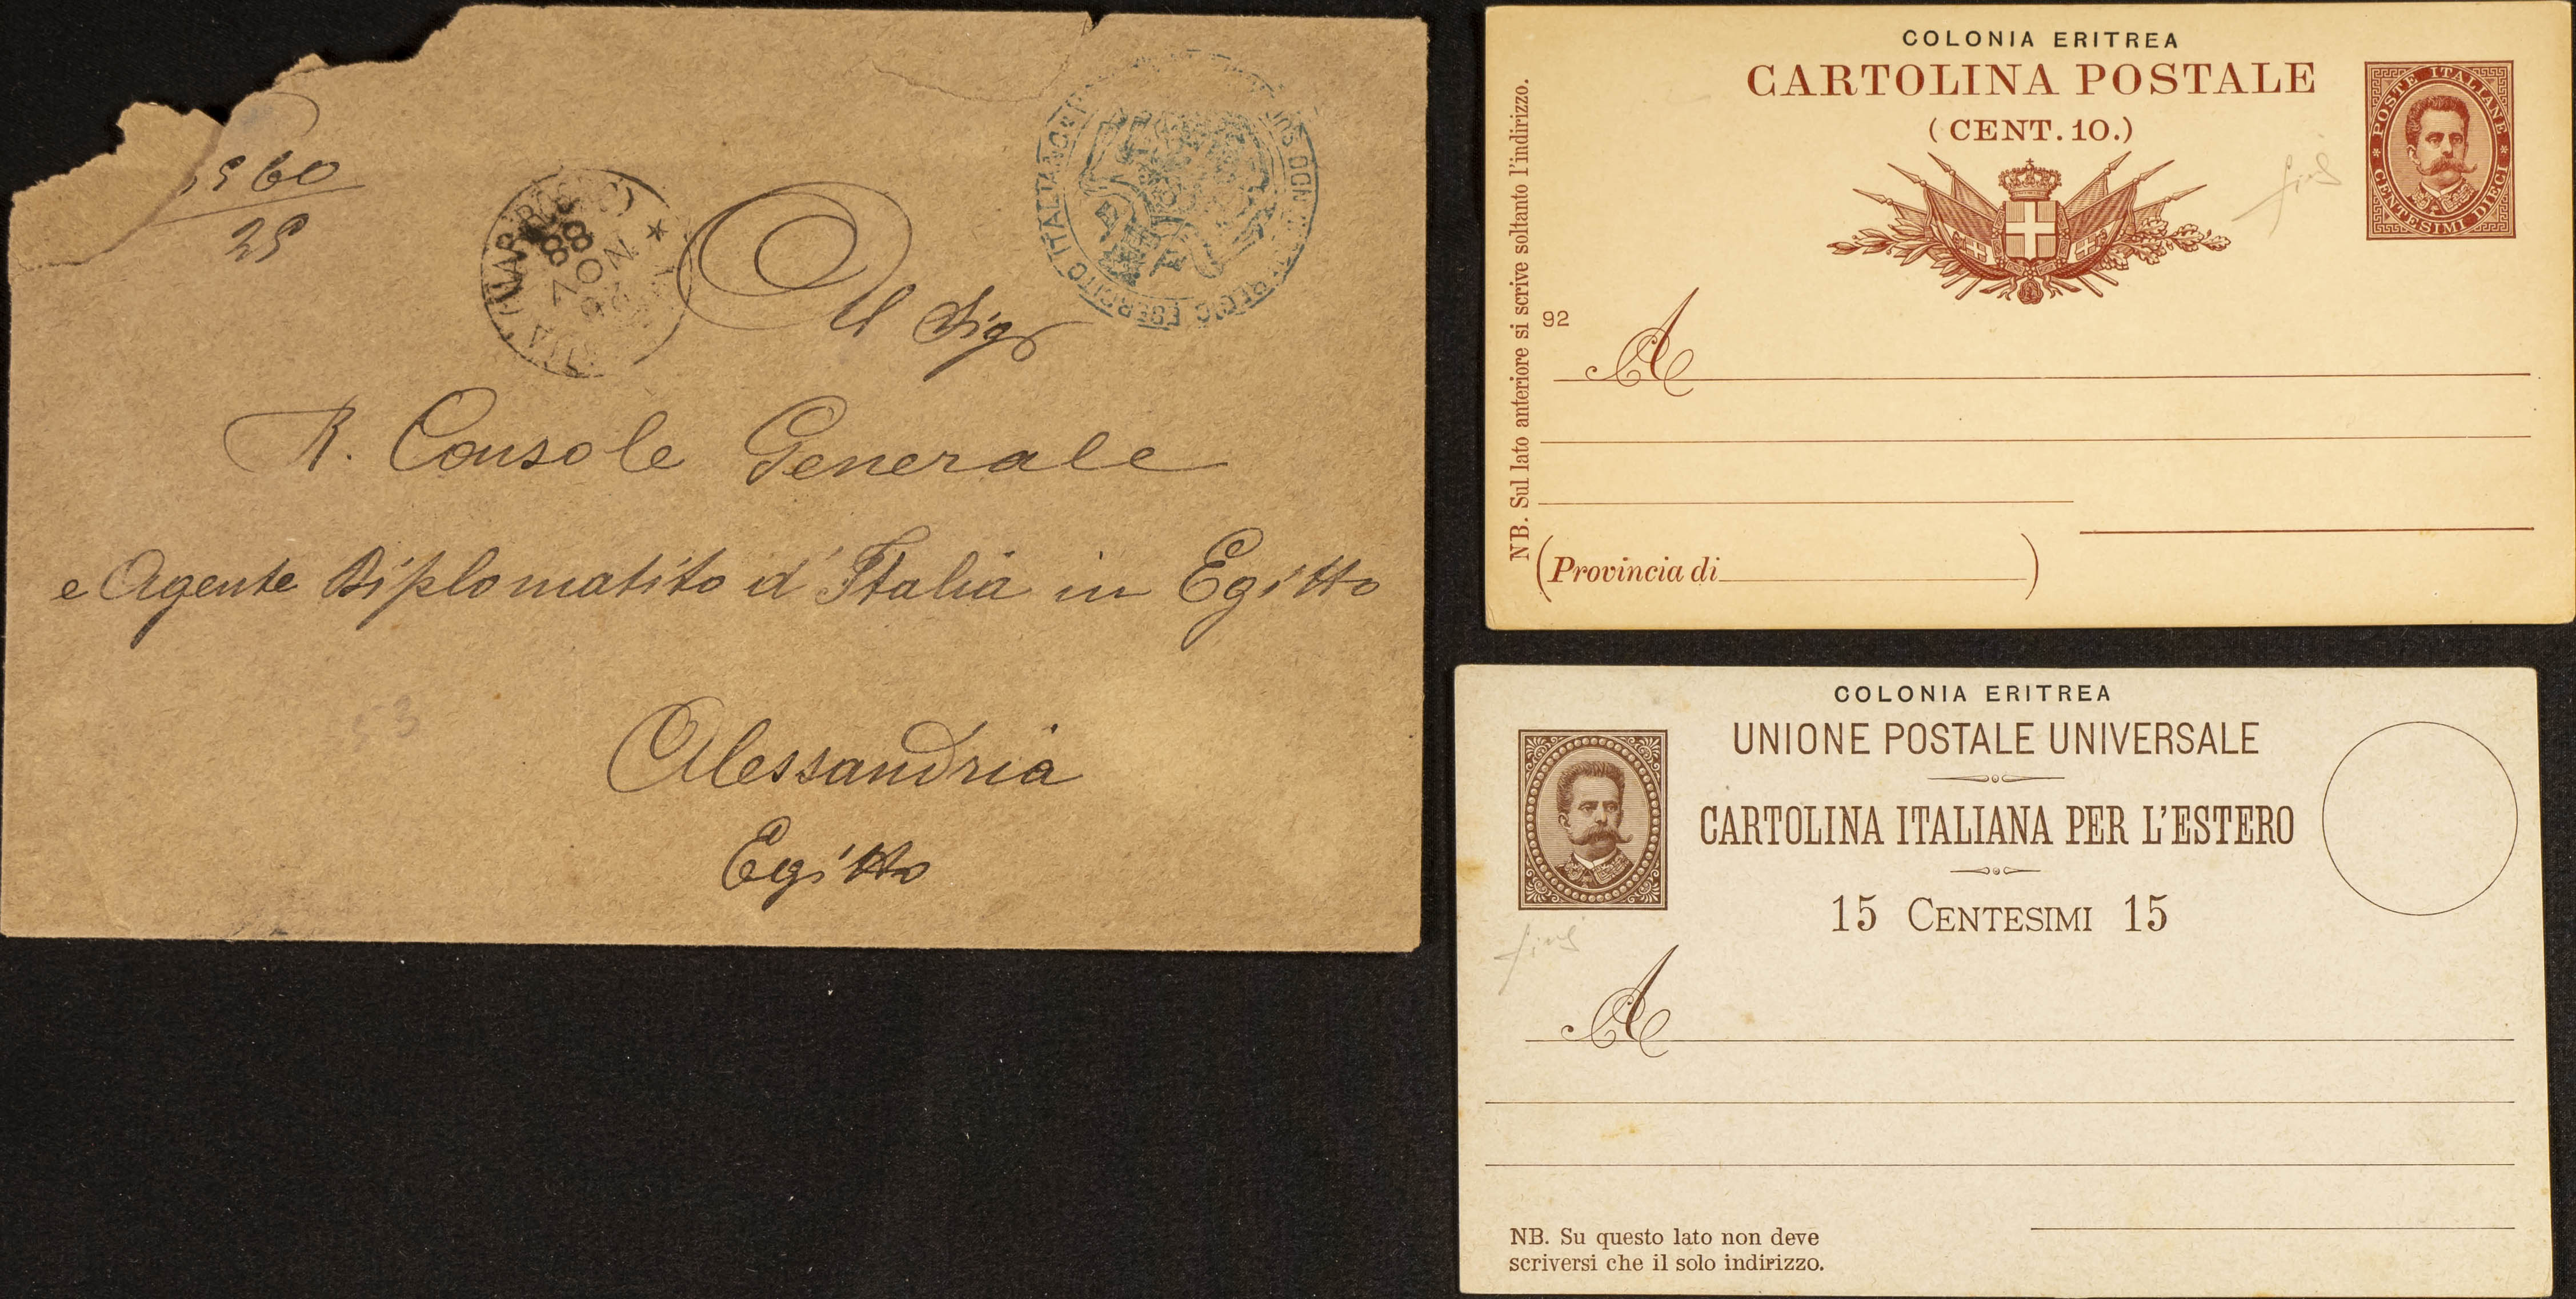 60
25
88
NOV
26
REGIO ESERCITO ITALIANO
Al Sigr
R. Console Generale
e Agente Diplomatito d'Italia in Egitto
Alessandria
Egitto
53
COLONIA ERITREA
CARTOLINA POSTALE
(CENT. 10.)
* POSTE ITALIANE * CENTESIMI DIECI
NB. Sul lato anteriore si scrive soltanto l'indirizzo.
92
A
(Provincia di )
COLONIA ERITREA
UNIONE POSTALE UNIVERSALE
CARTOLINA ITALIANA PER L'ESTERO
15 CENTESIMI 15
A
NB. Su questo lato non deve
scriversi che il solo indirizzo.